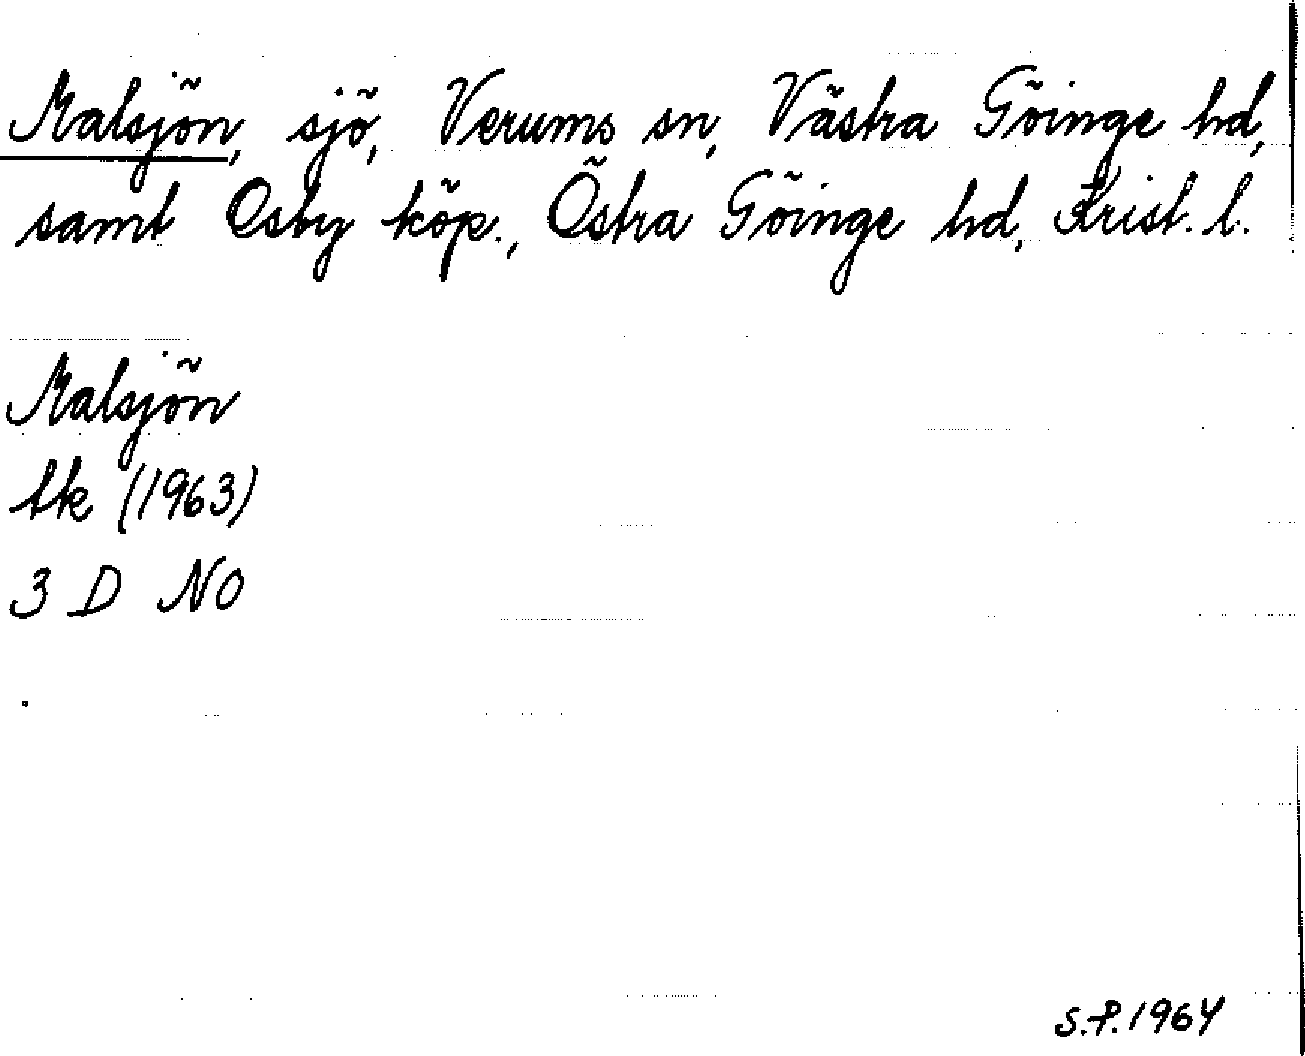 Malsjön, sjö, Verums sn, Västra Göinge hd,
samt Osby köp., Östra Göinge hd, Krist. l.
Malsjön
tk (1963)
3 D NO
S.P. 1964